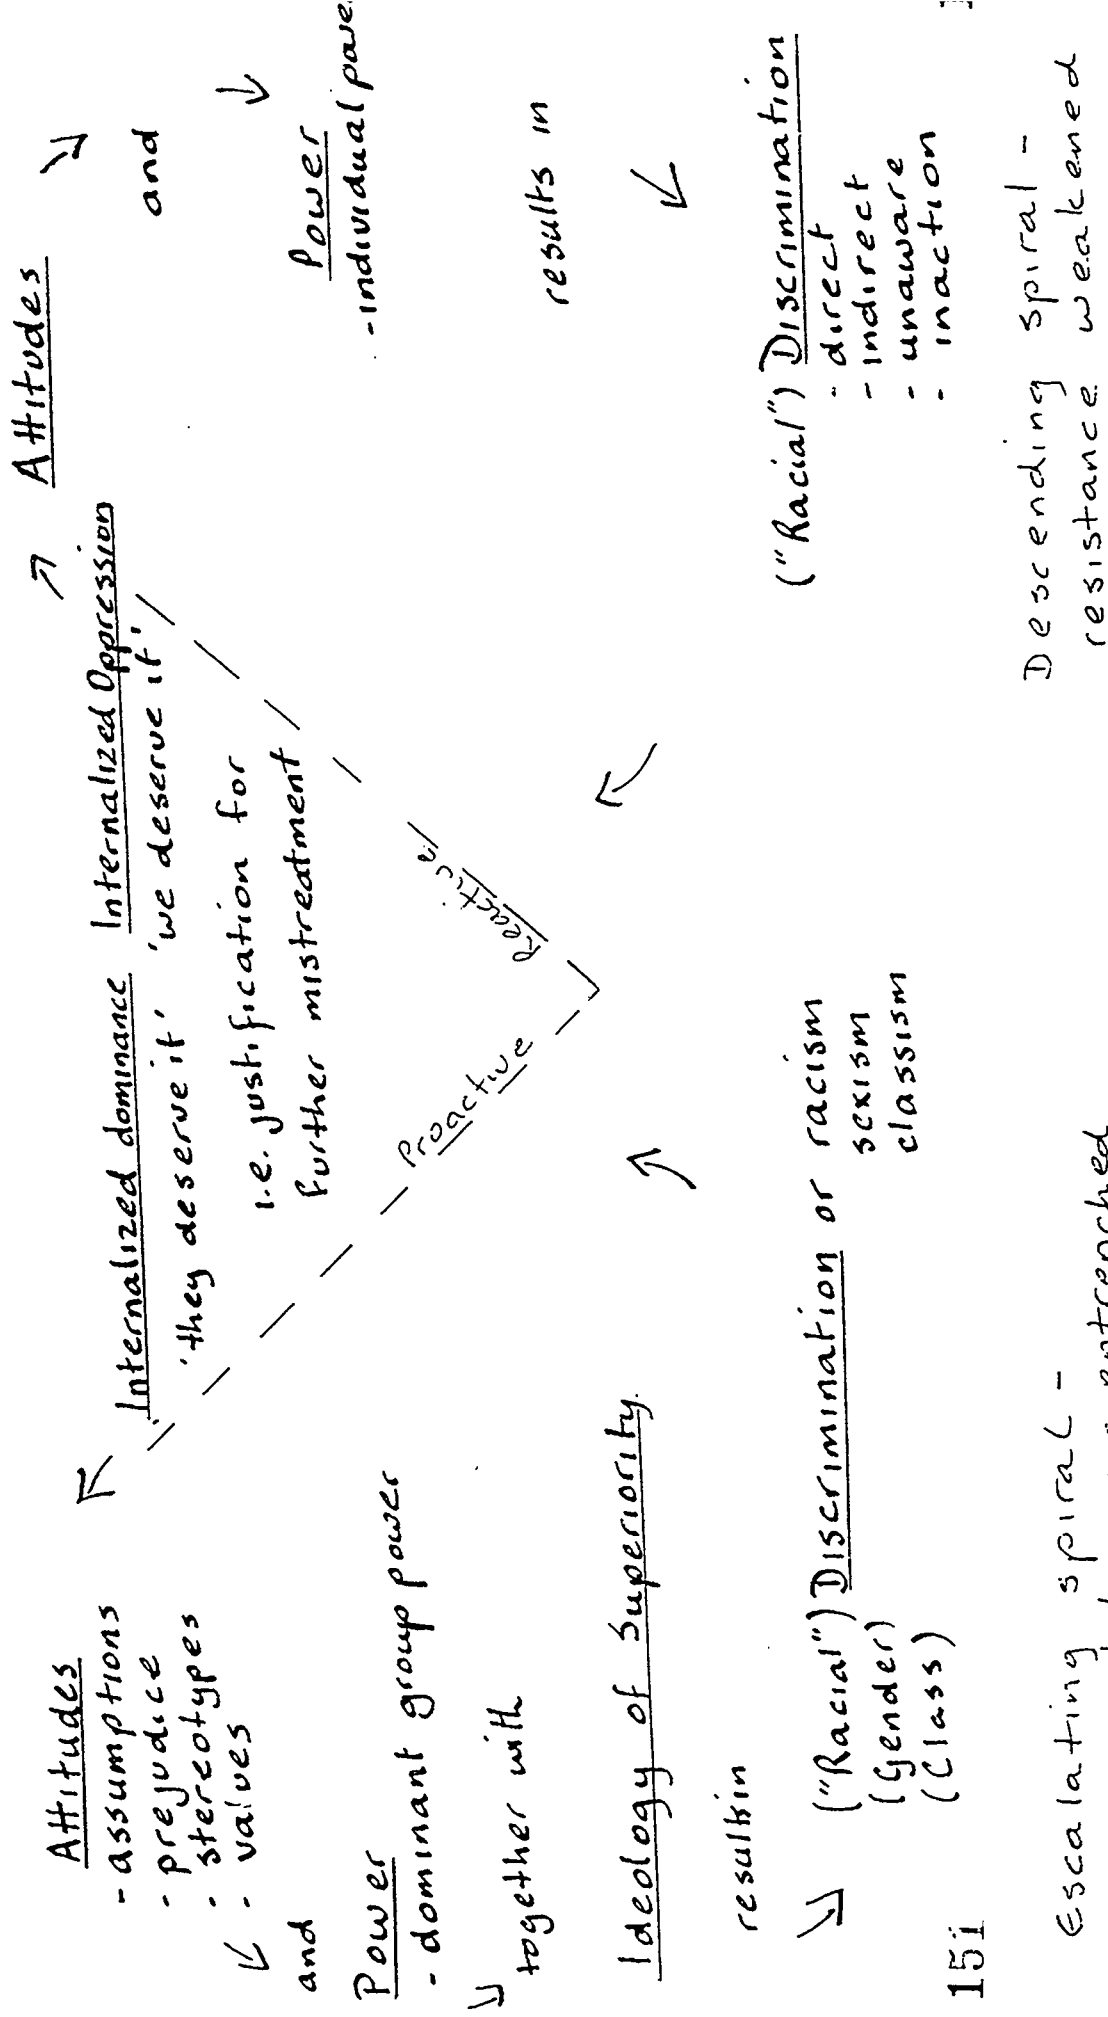 Attitudes
- assumptions
- prejudice
- stereotypes
- values
and
Power
- dominant group power
together with
Ideology of Superiority.
results in
("Racial") Discrimination or racism
(Gender) sexism
(Class) classism
151
Escalating spiral -
entrenched
Internalized dominance
'they deserve it'
Internalized Oppression
'we deserve it'
i.e. justification for
further mistreatment
Proactive
Reactive
Attitudes
and
Power
- individual
results in
("Racial") Discrimination
- direct
- indirect
- unaware
- inaction
Descending spiral -
resistance weakened